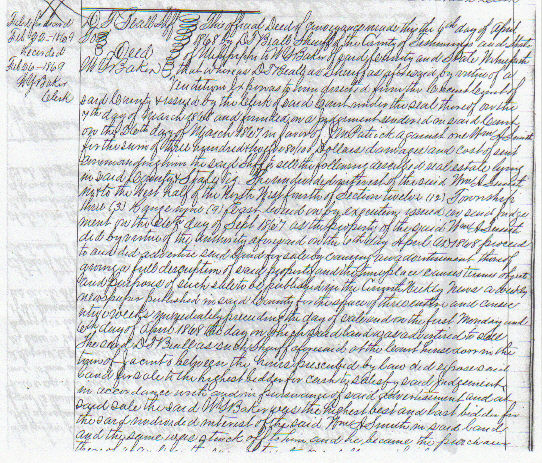 Filed for Record
Feb 20th - 1869
Recorded
Feb 20 - 1869
W G Baker
Clerk
D S Beall Shff
To } Deed
W G Baker
This official Deed of Conveyance made this the 6th day of April
1868 by D S Beall Sheriff of the County of Tishomingo and State
of Mississippi to W G Baker of said County and State Witnesseth
that whereas D S Beall as Sheriff as aforesaid by virtue of a
to him directed from the Circuit Court of
said County & issued by the Clerk of said Court under the seal thereof on the
7th day of March 1868 and founded on a judgement rendered in said County
on the 26th day of March 1867 in favor of Patrick against one Wm
for the sum of three hundred Dollars damages and cost of suit
Commanding him the said Shff to sell the following described real estate lying
in said County & State to wit The undivided interest of the said Wm Smith
to the West half of the North West fourth of Section twelve (12) Township
three (3) Range nine (9) East levied on by execution issued on said judge
ment on the day of Sept 1867 as the property of the said Wm Smith
did by virtue of the authority aforesaid on the 6th day April AD 1868 proceed
to and did advertise said land for sale by causing an advertisement thereof
giving a full description of said property and the time place causes terms object
and purposes of such sale to be published in the Corinth Weekly News a weekly
newspaper published in said County for the space of three entire and consec
utive weeks immediately preceeding the day of sale and on the first Monday and
6th day of April 1868 the day on which said land was advertised to sell
the said D S Beall as such Sheriff aforesaid at the Court house door in the
town of Jacinto between the hours prescribed by law did expose said
land for sale to the highest bidder for cash to satisfy said judgement
in accordance with and in pursuance of said advertisement and at
said sale the said W G Baker was the highest best and last bidder for
the said undivided interest of the said Wm Smith in said land
and the same was struck off to him and he became the purchaser